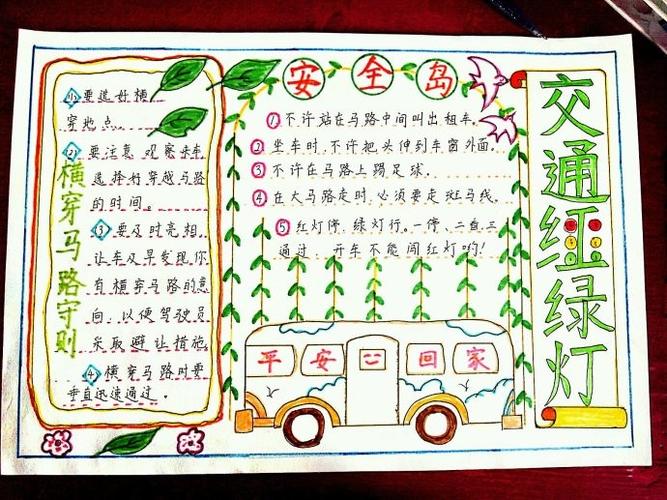 交通红绿灯
安全岛
①不许站在马路中间叫出租车。
②坐车时,不许把头伸到车窗外面。
③不许在马路上踢足球.
④在大马路走时,必须要走斑马线.
⑤红灯停,绿灯行。一停、二看三
通过,开车不能闯红灯哟!
横穿马路守则
①要选好横
穿地点.
②要注意观察来车
选择好穿越马路
的时间.
③要及时亮相.
让车及早发现你
有横穿马路的意
向.以便驾驶员
采取避让措施
④横穿马路时要
垂直迅速通过.
平安回家